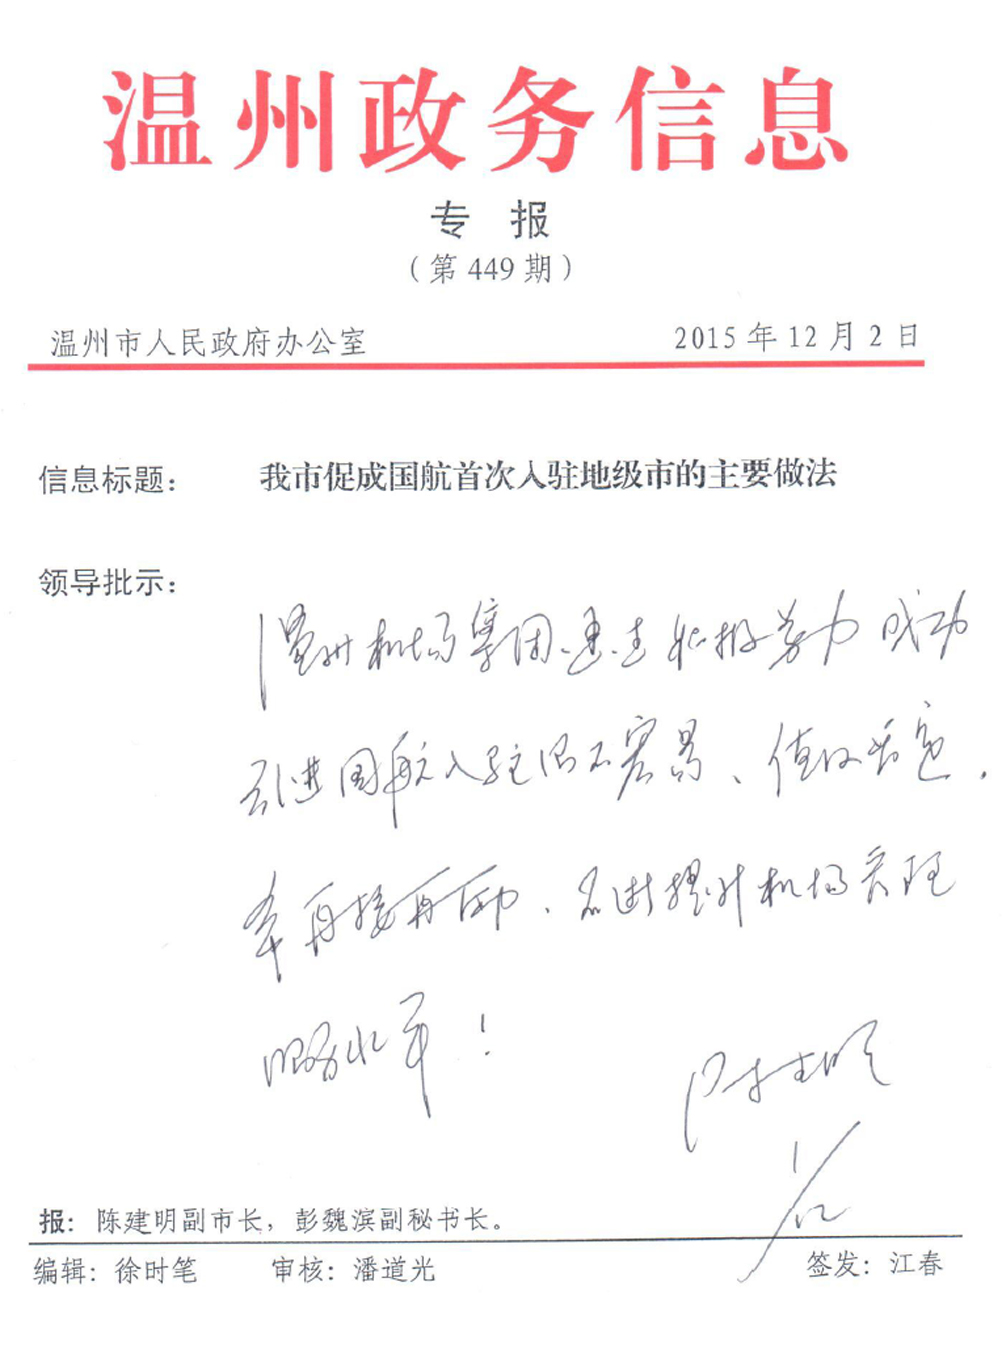 温州政务信息
专 报
（第 449 期）
温州市人民政府办公室 2015 年 12 月 2 日
信息标题： 我市促成国航首次入驻地级市的主要做法
领导批示：
温州机场集团 积极努力 成功
引进国航入驻很不容易、值得
再接再励、不断提升机场管理
服务水平！
陈建明
报：陈建明副市长，彭魏滨副秘书长。
编辑：徐时笔 审核：潘道光 签发：江春